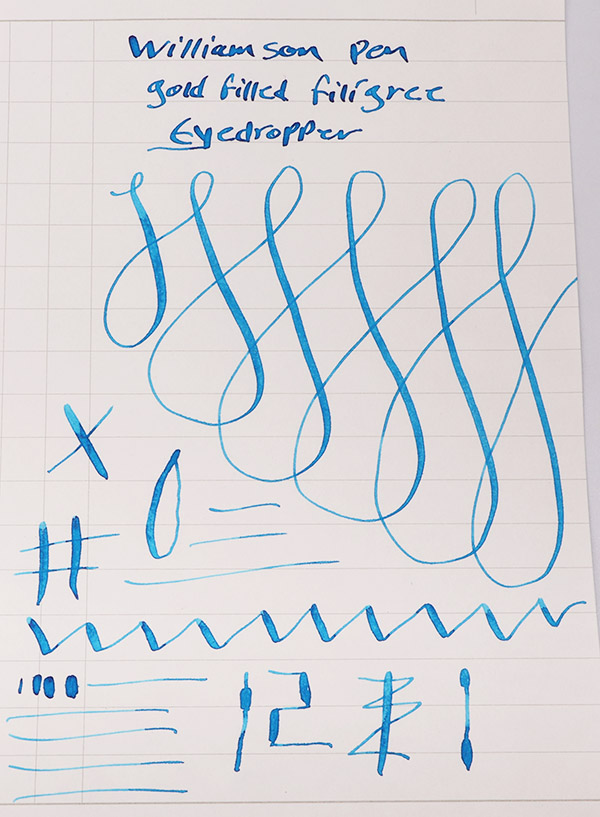 Williamson pen
gold filled filigree
Eyedropper